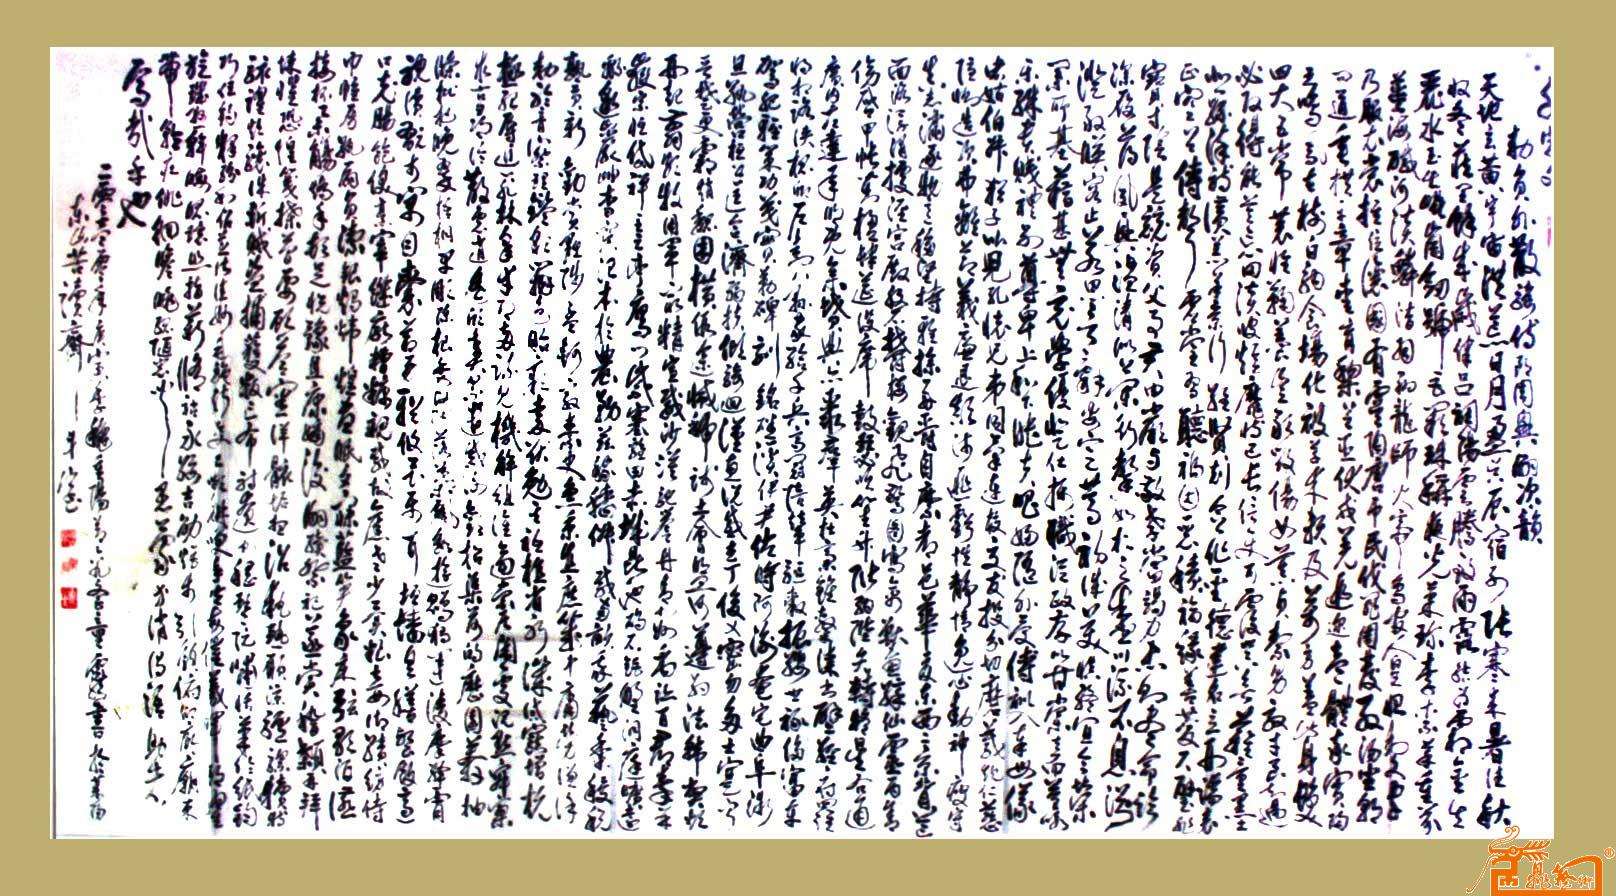 千字文
勅員外散騎侍郎周興嗣次韻
天地玄黃宇宙洪荒日月盈昃辰宿列張寒來暑往秋
收冬藏閏餘成歲律呂調陽雲騰致雨露結為霜金生
麗水玉出崑岡劍號巨闕珠稱夜光果珍李柰菜重芥
薑海鹹河淡鱗潛羽翔龍師火帝鳥官人皇始制文字
乃服衣裳推位讓國有虞陶唐弔民伐罪周發殷湯坐朝
問道垂拱平章愛育黎首臣伏戎羌遐邇壹體率賓歸
王鳴鳳在樹白駒食場化被草木賴及萬方蓋此身髮
四大五常恭惟鞠養豈敢毀傷女慕貞絜男效才良知過
必改得能莫忘罔談彼短靡恃己長信使可覆器欲難量墨
悲絲染詩讚羔羊景行維賢剋念作聖德建名立形端表
正空谷傳聲虛堂習聽禍因惡積福緣善慶尺璧非
寶寸陰是競資父事君曰嚴與敬孝當竭力忠則盡命臨
深履薄夙興溫凊似蘭斯馨如松之盛川流不息淵
澄取映容止若思言辭安定篤初誠美慎終宜令榮
業所基籍甚無竟學優登仕攝職從政存以甘棠去而益詠
樂殊貴賤禮別尊卑上和下睦夫唱婦隨外受傅訓入奉母儀
諸姑伯叔猶子比兒孔懷兄弟同氣連枝交友投分切磨箴規仁慈
隱惻造次弗離節義廉退顛沛匪虧性靜情逸心動神疲守
真志滿逐物意移堅持雅操好爵自縻都邑華夏東西二京背邙
面洛浮渭據涇宮殿盤鬱樓觀飛驚圖寫禽獸畫彩仙靈丙舍
傍啟甲帳對楹肆筵設席鼓瑟吹笙升階納陛弁轉疑星右通
廣內左達承明既集墳典亦聚群英杜稿鍾隸漆書壁經府羅
將相路俠槐卿戶封八縣家給千兵高冠陪輦驅轂振纓世祿侈富車
駕肥輕策功茂實勒碑刻銘磻溪伊尹佐時阿衡奄宅曲阜微
旦孰營桓公匡合濟弱扶傾綺迴漢惠說感武丁俊乂密勿多士寔寧
晉楚更霸趙魏困橫假途滅虢踐土會盟何遵約法韓弊煩
刑起翦頗牧用軍最精宣威沙漠馳譽丹青九州禹跡百郡秦并
嶽宗恒岱禪主云亭雁門紫塞雞田赤城昆池碣石鉅野洞庭曠遠
綿邈巖岫杳冥治本於農務茲稼穡俶載南畝我藝黍稷稅
熟貢新勸賞黜陟孟軻敦素史魚秉直庶幾中庸勞謙謹
勅聆音察理鑒貌辨色貽厥嘉猷勉其祗植省躬譏誡寵增抗
極殆辱近恥林皋幸即兩疏見機解組誰逼索居閒處沉默寂寥
求古尋論散慮逍遙欣奏累遣慼謝歡招渠荷的歷園莽抽
條枇杷晚翠梧桐早凋陳根委翳落葉飄颻遊鵾獨運凌摩絳霄
耽讀翫市寓目囊箱易輶攸畏屬耳垣牆具膳餐飯適
口充腸飽飫烹宰飢厭糟糠親戚故舊老少異糧妾御績紡侍
巾帷房紈扇圓潔銀燭煒煌晝眠夕寐藍筍象床弦歌酒讌
接杯舉觴矯手頓足悅豫且康嫡後嗣續祭祀烝嘗稽顙再拜
悚懼恐惶箋牒簡要顧答審詳骸垢想浴執熱願涼驢騾犢特
駭躍超驤誅斬賊盜捕獲叛亡布射遼丸嵇琴阮嘯恬筆倫紙鈞
巧任釣釋紛利俗並皆佳妙毛施淑姿工顰妍笑年矢每催曦暉朗曜
旋璣懸斡晦魄環照指薪修祜永綏吉劭矩步引領俯仰廊廟束
帶矜莊徘徊瞻眺孤陋寡聞愚蒙等誚謂語助者
焉哉乎也
二零零零年
東海苦讀齋